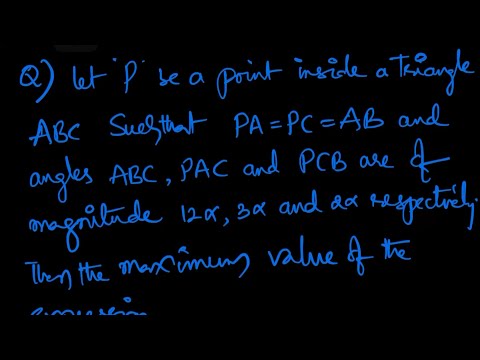 Q) Let 'P' be a point inside a triangle
ABC Such that PA = PC = AB and
angles ABC, PAC and PCB are of
magnitude 12α, 3α and 2α respectively.
Then the maximum value of the